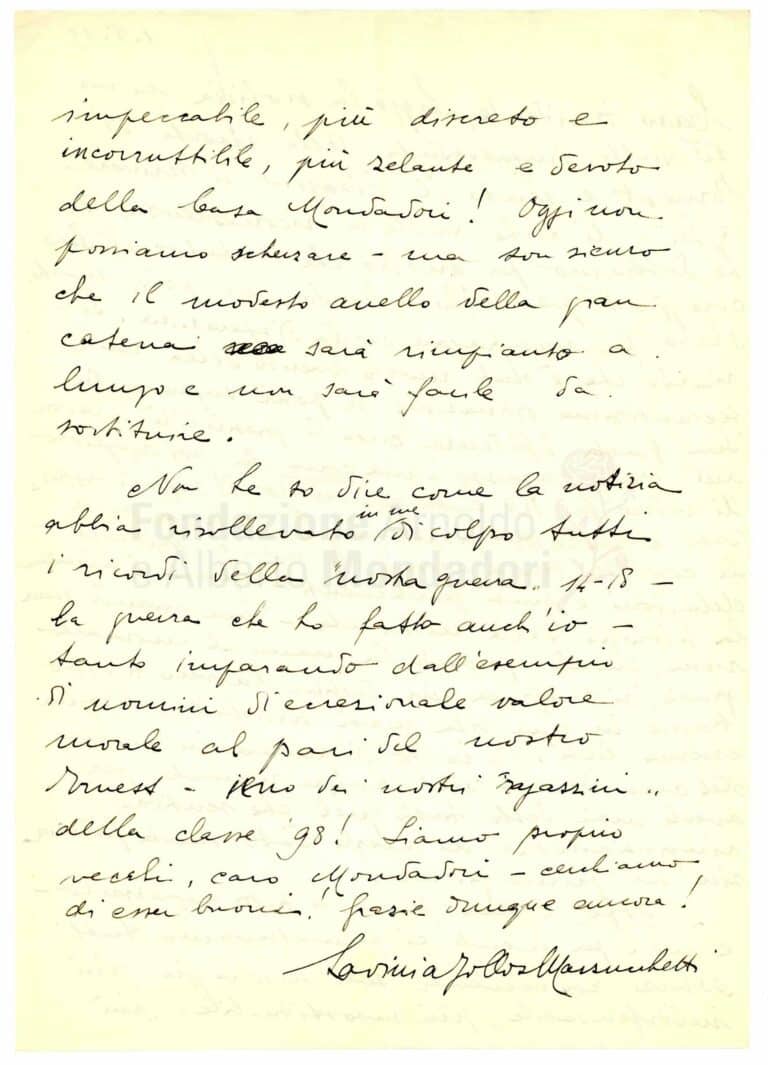 impeccabile, più discreto e
incorruttibile, più zelante e devoto
della Casa Mondadori! Oggi non
possiamo scherzare - ma son sicuro
che il modesto anello della gran
catena sarà rimpianto a
lungo e non sarà facile da
sostituire.
Non Le so dire come la notizia
abbia risollevato in me di colpo tutti
i ricordi della "nostra guerra" 14-18 -
la guerra che ho fatto anch'io -
tanto imparando dall'esempio
di uomini di eccezionale valore
morale al pari del nostro
Ernest - uno dei nostri "ragazzini"
della classe '98! Siamo proprio
vecchi, caro Mondadori - cerchiamo
di esser buoni! Grazie dunque ancora!
Lavinia Jollos Mazzucchetti
Fondazione Arnoldo
e Alberto Mondadori